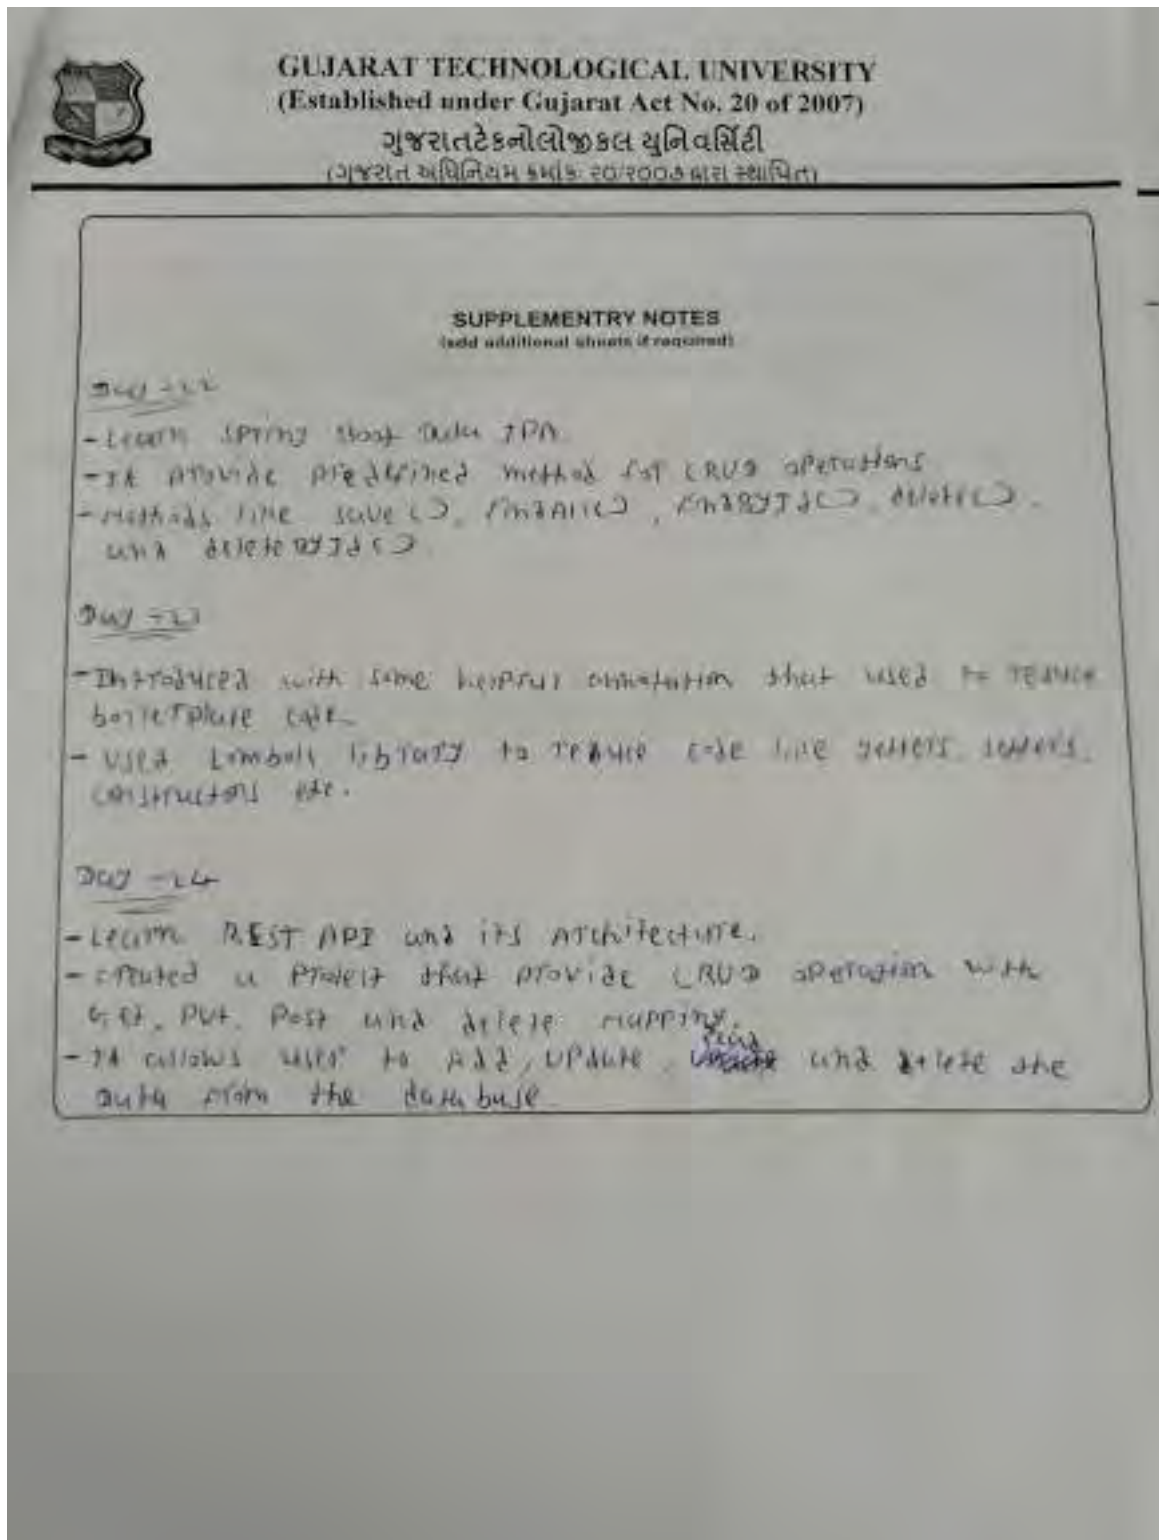 GUJARAT TECHNOLOGICAL UNIVERSITY
(Established under Gujarat Act No. 20 of 2007)
ગુજરાતટેકનોલોજીકલ યુનિવર્સિટી
(ગુજરાત અધિનિયમ ક્રમાંકઃ ૨૦/૨૦૦૭ દ્વારા સ્થાપિત)
SUPPLEMENTRY NOTES
(add additional sheets if required)
Day -22
- Learn Spring Boot Data JPA
- It provide predefined method for CRUD operations
- Methods like save(), findAll(), findById(), delete(),
and deleteById()
Day -23
- Introduced with some helpful annotation that used to reduce
boilerplate code
- Used Lombok library to reduce code like getters, setters,
constructors etc.
Day -24
- Learn REST API and its Architecture.
- Created a project that provide CRUD operation with
Get, Put, Post and delete mapping.
- It allows user to Add, Update, read and delete the
Data from the database